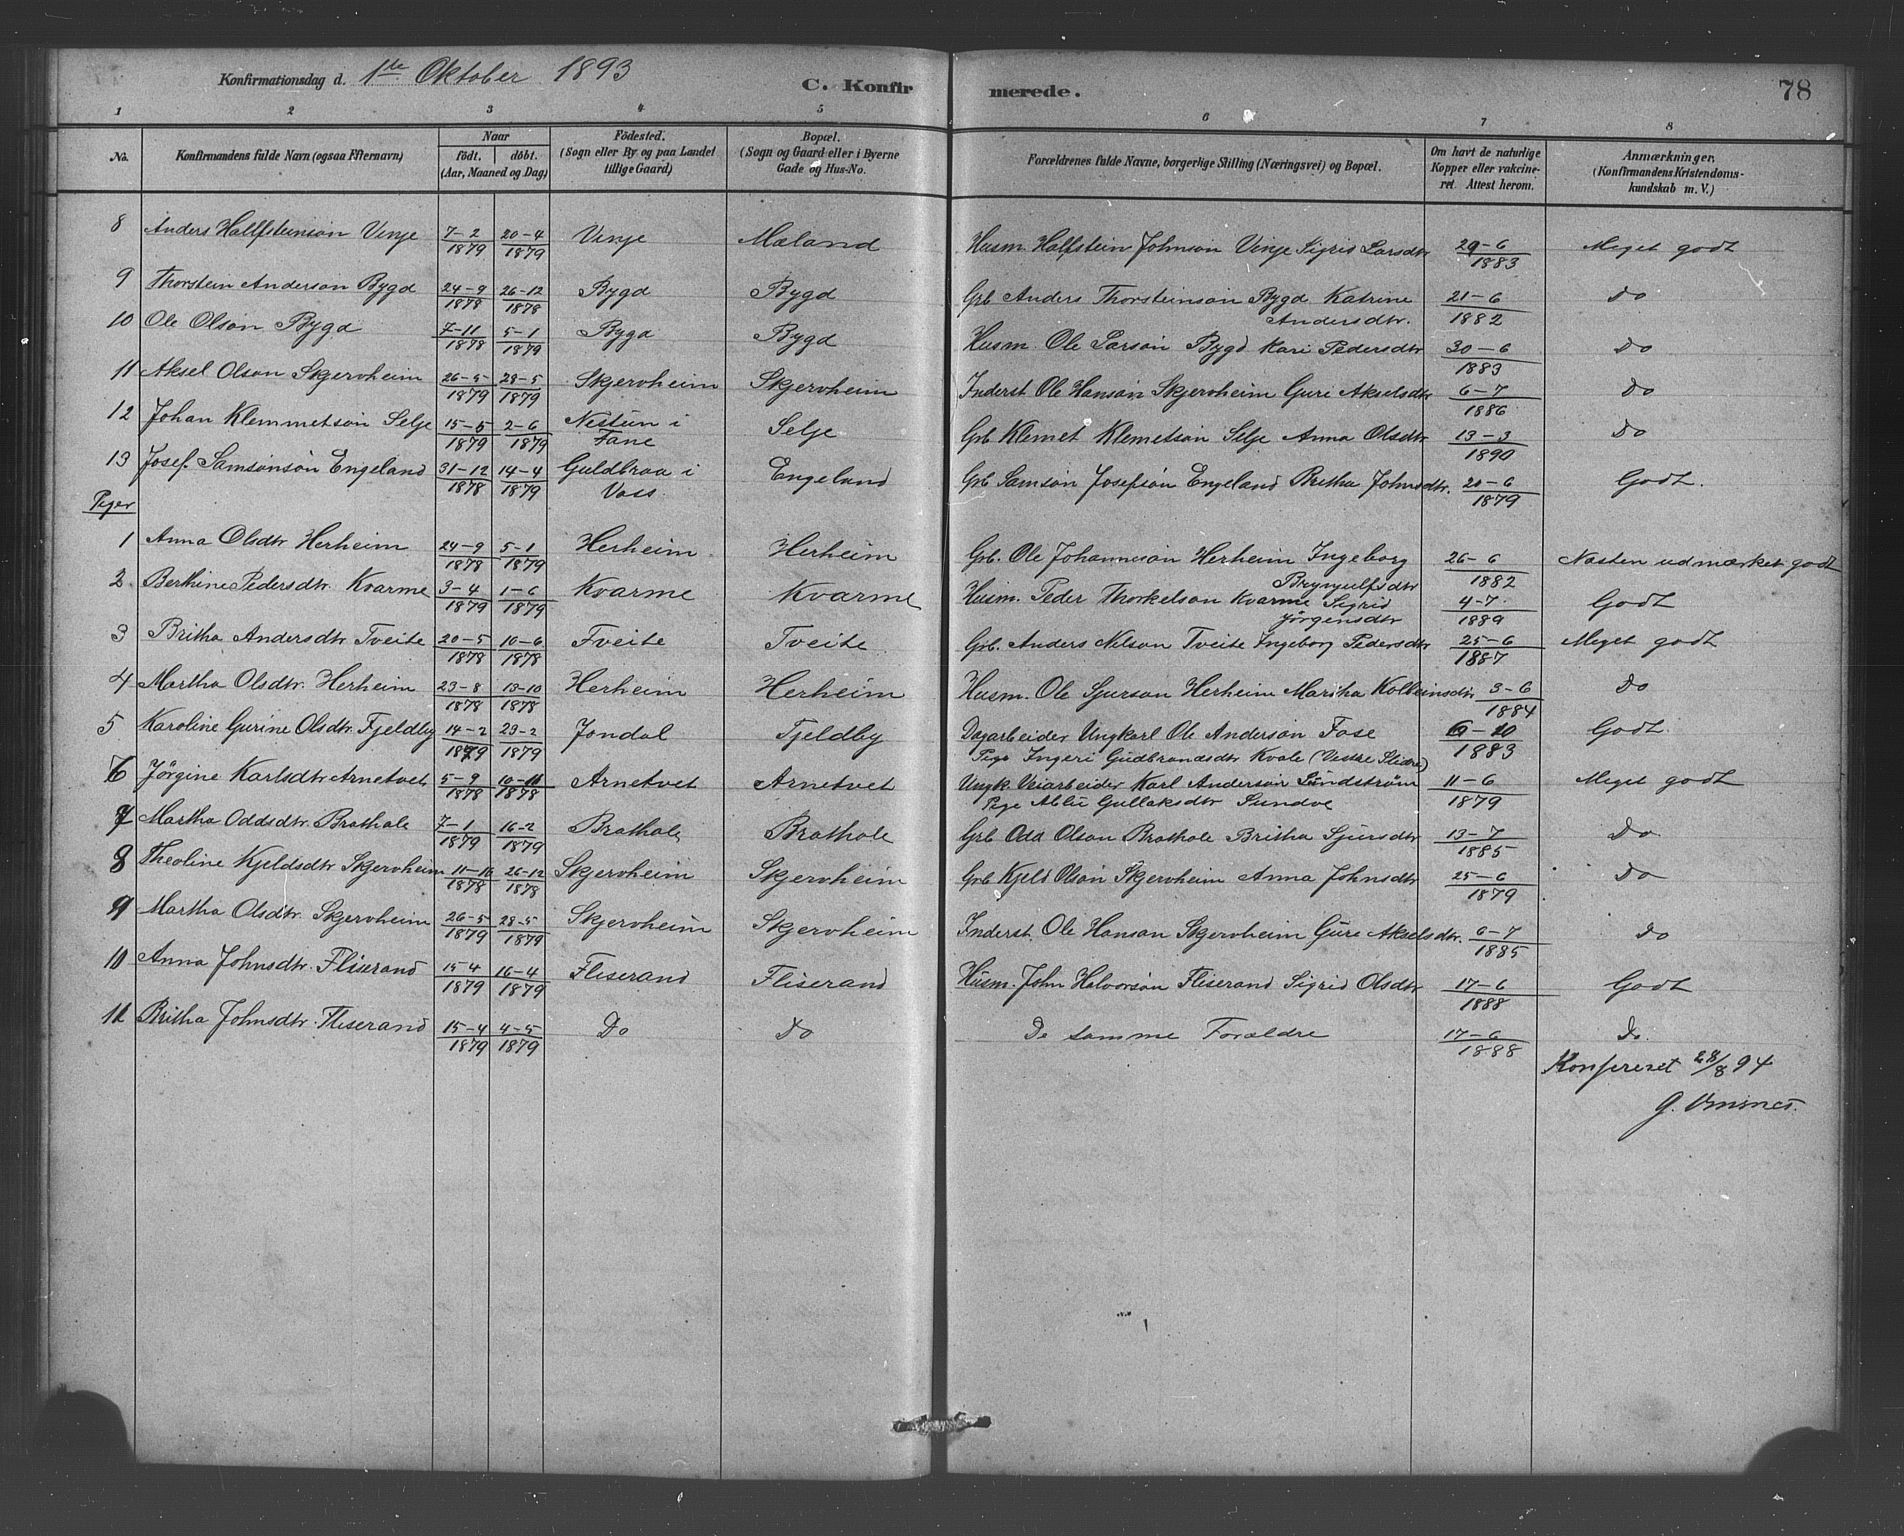 Konfirmationsdag d. 1ste Oktober 1893 C. Konfirmerede. 78
1 2 3 4 5 6 7 8
No. Konfirmandens fulde Navn (ogsaa Efternavn) Naar födt. döbt. (Aar, Maaned og Dag) Födested. (Sogn eller By og paa Landet tillige Gaard) Bopæl. (Sogn og Gaard eller i Byerne Gade og Hus-No. Forældrenes fulde Navne, borgerlige Stilling (Næringsvei) og Bopæl. Om havt de naturlige Kopper eller vakcineret. Attest herom. Anmærkninger. (Konfirmandens Kristendomskundskab m. V.)
8 Anders Hallfsteinsön Vinje 7-2 1879 20-4 1879 Vinje Mæland Husm. Halfstein Johnson Vinje Sigris Larsdtr 29-6 1883 Meget godt
9 Thorstein Anderson Bygd 24-9 1878 26-12 1878 Bygd Bygd Grb. Anders Thorsteinsön Bygd Katrine Andersdtr. 21-6 1882 Do
10 Ole Olson Bygd 7-11 1878 5-1 1879 Bygd Bygd Husm. Ole Larsön Bygd Kari Pedersdtr 30-6 1883 Do
11 Aksel Olson Skjervheim 26-5 1879 28-5 1879 Skjervheim Skjervheim Inderst Ole Hansön Skjervheim Guri Akselsdtr 6-7 1886 Do
12 Johan Klemmetsön Selje 15-5 1879 2-6 1879 Nestun i Fane Selje Grb. Klemet Klemetsön Selje Anna Olsdtr 13-3 1890 Do
13 Josef Samsonsön Engeland 31-12 1878 14-4 1879 Guldbraa i Voss Engeland Grb. Samson Josefsön Engeland Britha Johnsdtr. 20-6 1879 Godt.
Piger
1 Anna Olsdtr Herheim 24-9 1878 5-1 1879 Herheim Herheim Grb. Ole Johannesön Herheim Ingeborg Brynjulfsdtr 26-6 1882 Næsten udmærket godt
2 Berthine Pedersdtr. Kvarme 3-4 1879 1-6 1879 Kvarme Kvarme Husm. Peder Thorkelson Kvarme Sigrid Jörgensdtr 4-7 1889 Godt
3 Britha Andersdtr Tveite 20-5 1878 10-6 1878 Tveite Tveite Grb. Anders Nelson Tveite Ingeborg Pedersdtr 25-6 1887 Meget godt
4 Martha Olsdtr. Herheim 23-8 1878 13-10 1878 Herheim Herheim Husm. Ole Sjurson Herheim Martha Kolbeinsdtr 3-6 1884 Do
5 Karoline Gurine Olsdtr. Fjeldby 14-2 1879 23-2 1879 Jondal Fjeldby Dagarbeider Ungkarl Ole Anderson Fose Pige Ingeri Gudbrandsdtr Kvale (Vestre Slidre) 6-10 1883 Godt
6 Jörgine Karlsdtr Arnetvet 5-9 1878 10-11 1878 Arnetvet Arnetvet Ungk. Veiarbeider Karl Anderson Lindström Pige Gullaksdtr Sundve 11-6 1879 Meget godt
7 Martha Oddsdtr. Brathole 7-1 1879 16-2 1879 Brathole Brathole Grb Odd Olson Brathole Britha Sjursdtr 13-7 1885 Do
8 Theoline Kjeldsdtr Skjervheim 11-10 1878 26-12 1878 Skjervheim Skjervheim Grb Kjeld Olson Skjervheim Anna Johnsdtr 25-6 1879 Do
9 Martha Olsdtr. Skjervheim 26-5 1879 28-5 1879 Skjervheim Skjervheim Inderst. Ole Hanson Skjervheim Guri Akselsdtr. 6-7 1885 Do
10 Anna Johnsdtr. Fliserand 15-4 1879 16-4 1879 Fliserand Fliserand Husm. John Halvorsön Fliserand Sigrid Olsdtr 17-6 1888 Godt
11 Britha Johnsdtr. Fliserand 15-4 1879 4-5 1879 Do Do De samme Forældre 17-6 1888 Do.
Konfereret 28/8 94